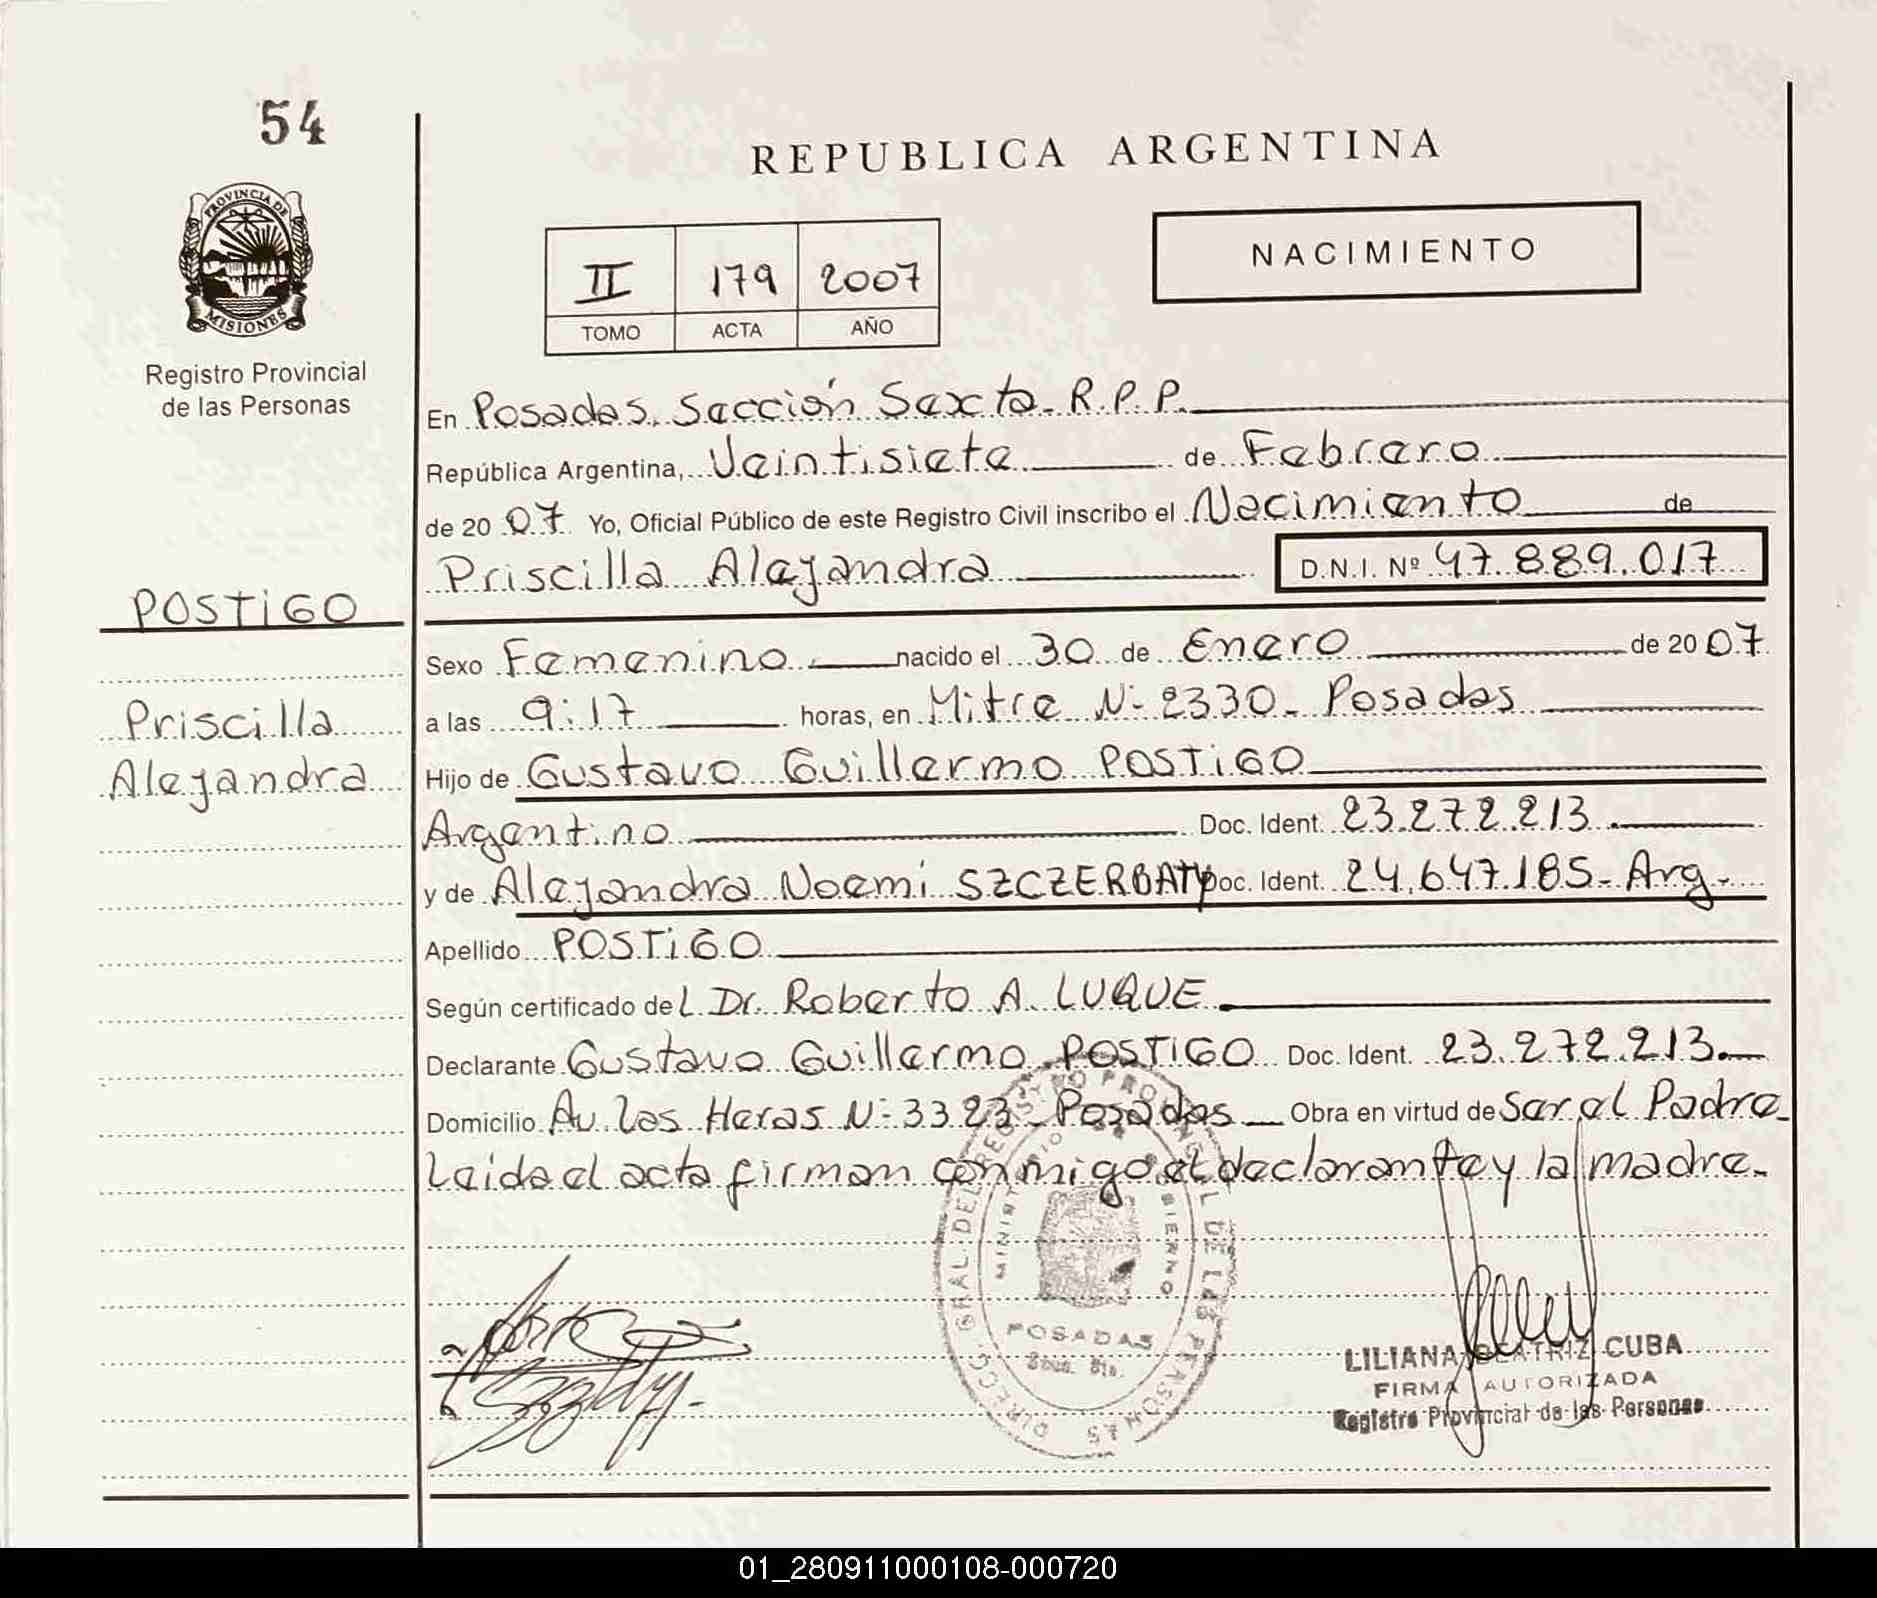 54
REPUBLICA ARGENTINA
PROVINCIA DE
MISIONES
Registro Provincial
de las Personas
NACIMIENTO
II 179 2007
TOMO ACTA AÑO
En Posadas, Sección Sexta R.P.P.
República Argentina, Veintisiete de Febrero
de 2007 Yo, Oficial Público de este Registro Civil inscribo el Nacimiento de
Priscilla Alejandra D.N.I. Nº 47.889.017
POSTIGO
Priscilla
Alejandra
Sexo Femenino nacido el 30 de Enero de 2007
a las 9:17 horas, en Mitre Nº 2330 - Posadas
Hijo de Gustavo Guillermo POSTIGO
Argentino Doc. Ident. 23.272.213
y de Alejandra Noemi SZCZERBATY Doc. Ident. 24.647.185 - Arg.
Apellido POSTIGO
Según certificado del Dr. Roberto A. LUQUE
Declarante Gustavo Guillermo POSTIGO Doc. Ident. 23.272.213
Domicilio Av. las Heras Nº 3323 - Posadas Obra en virtud de Ser el Padre
Leida el acta firman conmigo el declarante y la madre.
DIRECC. GRAL. DEL REGISTRO PROVINCIAL DE LAS PERSONAS
MINISTERIO GOBIERNO
POSADAS
LILIANA BEATRIZ CUBA
FIRMA AUTORIZADA
Registro Provincial de las Personas
01_280911000108-000720